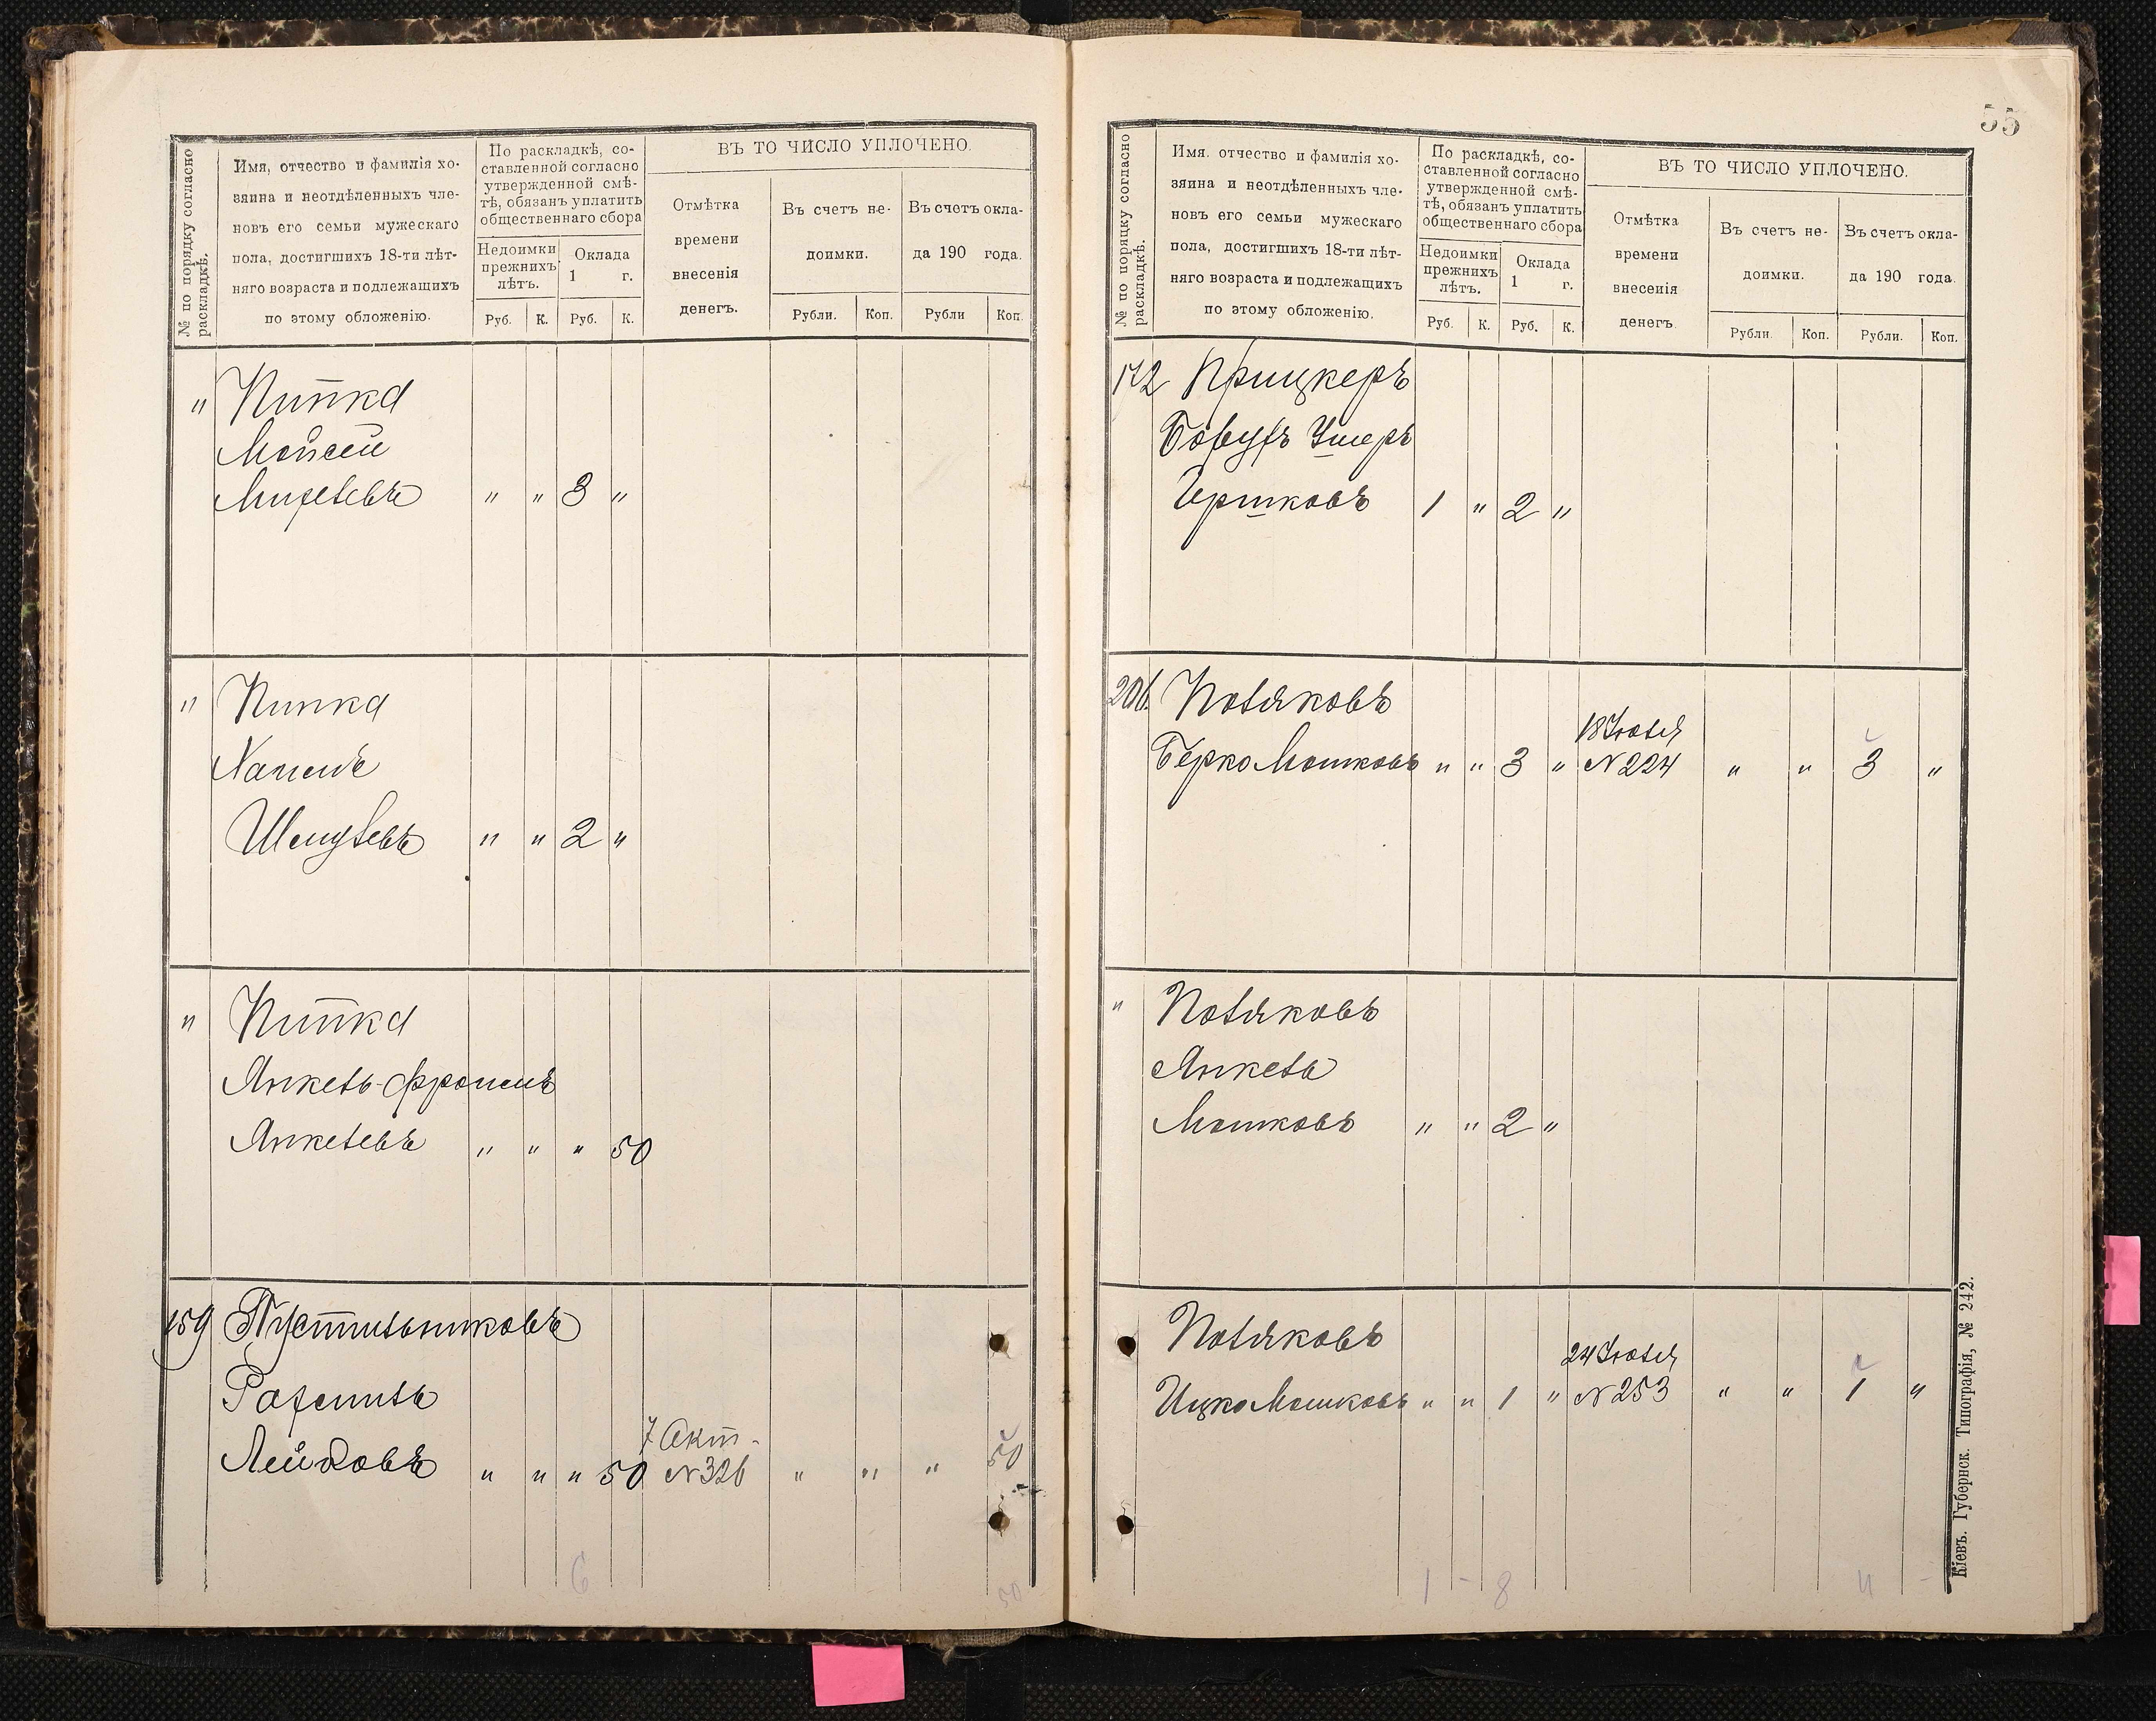 № по порядку согласно раскладкѣ.
Имя, отчество и фамилія хо-
зяина и неотдѣленныхъ чле-
новъ его семьи мужескаго
пола, достигшихъ 18-ти лѣт-
няго возраста и подлежащихъ
по этому обложенію.
По раскладкѣ, со-
ставленной согласно
утвержденной смѣ-
тѣ, обязанъ уплатить
общественнаго сбора
Недоимки
прежнихъ
лѣтъ.
Оклада
1 г.
Руб. К. Руб. К.
ВЪ ТО ЧИСЛО УПЛОЧЕНО.
Отмѣтка
времени
внесенія
денегъ.
Въ счетъ не-
доимки.
Въ счетъ окла-
да 190 года.
Рубли. Коп. Рубли Коп.
" Пипка
Мойсей
Михелевъ " " 3 "
" Пипка
Хаимъ
Шмулевъ " " 2 "
" Пипка
Янкель-Фроимъ
Янкелевъ " " " 50
159 Пустильниковъ
Рахмиль
7 Окт.
Лейбовъ " " " 50 № 326 " " " 50
6 50
55
№ по поряцку согласно раскладкѣ.
Имя, отчество и фамилія хо-
зяина и неотдѣленныхъ чле-
новъ его семьи мужескаго
пола, достигшихъ 18-ти лѣт-
няго возраста и подлежащихъ
по этому обложенію.
По раскладкѣ, со-
ставленной согласно
утвержденной смѣ-
тѣ, обязанъ уплатить
общественнаго сбора
Недоимки
прежнихъ
лѣтъ.
Оклада
1 г.
Руб. К. Руб. К.
ВЪ ТО ЧИСЛО УПЛОЧЕНО.
Отмѣтка
времени
внесенія
денегъ.
Въ счетъ не-
доимки.
Въ счетъ окла-
да 190 года.
Рубли. Коп. Рубли. Коп.
172 Прицкеръ
Борухъ Ушеръ
Гершковъ 1 " 2 "
206. Поляковъ
18 Іюля
Берко Мошковъ " " 3 " № 224 " " 3 "
" Поляковъ
Янкель
Мошковъ " " 2 "
Поляковъ
24 Іюля
Ицко Мошковъ " " 1 " № 253 " " 1 "
1 - 8 4 -
Кіевъ. Губернск. Типографія, № 242.